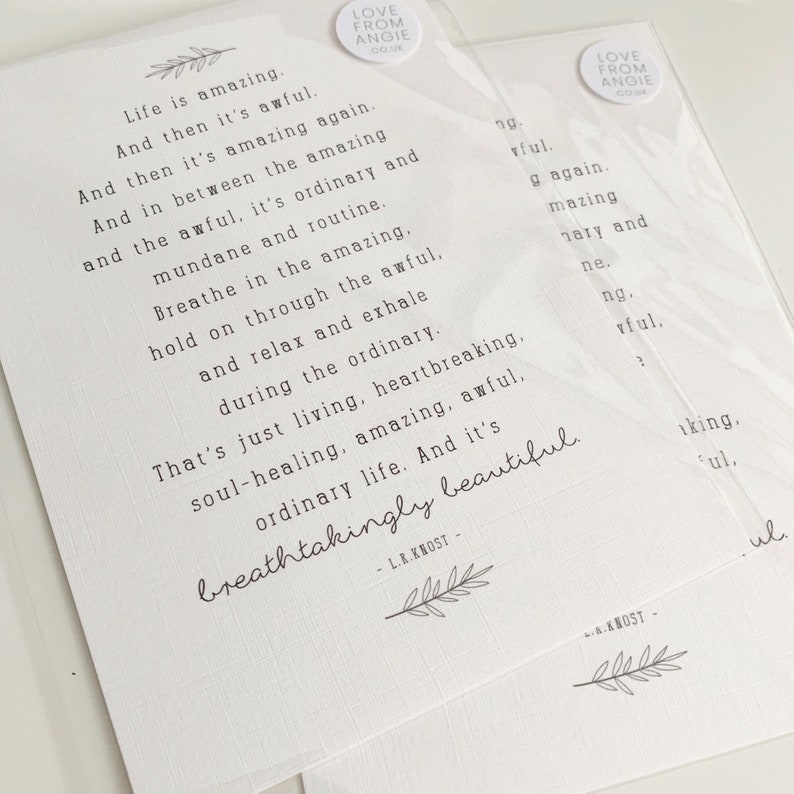 LOVE
FROM
ANGIE
.CO.UK
Life is amazing.
And then it's awful.
And then it's amazing again.
And in between the amazing
and the awful, it's ordinary and
mundane and routine.
Breathe in the amazing,
hold on through the awful,
and relax and exhale
during the ordinary.
That's just living, heartbreaking,
soul-healing, amazing, awful,
ordinary life. And it's
breathtakingly beautiful.
- L.R.KNOST -
LOVE
FROM
ANGIE
.CO.UK
ng.
wful.
g again.
mazing
nary and
ne.
ng,
wful,
e
aking,
ful,
ul.
L.R.KNOST -